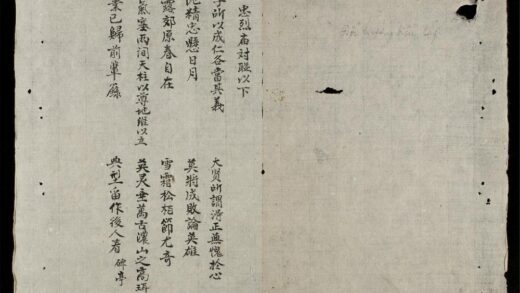 忠烈庙对联以下
所以成仁各當其義 大賢所謂浩正無愧於心
此精忠懸日月 莫將成敗論英雄
露郊原春自在 雪霜松栢節尤奇
氣塞兩間天柱以尊地維以立 英灵垂萬古濃山之高珥
業已歸前輩錄 典型留作後人看 碑亭